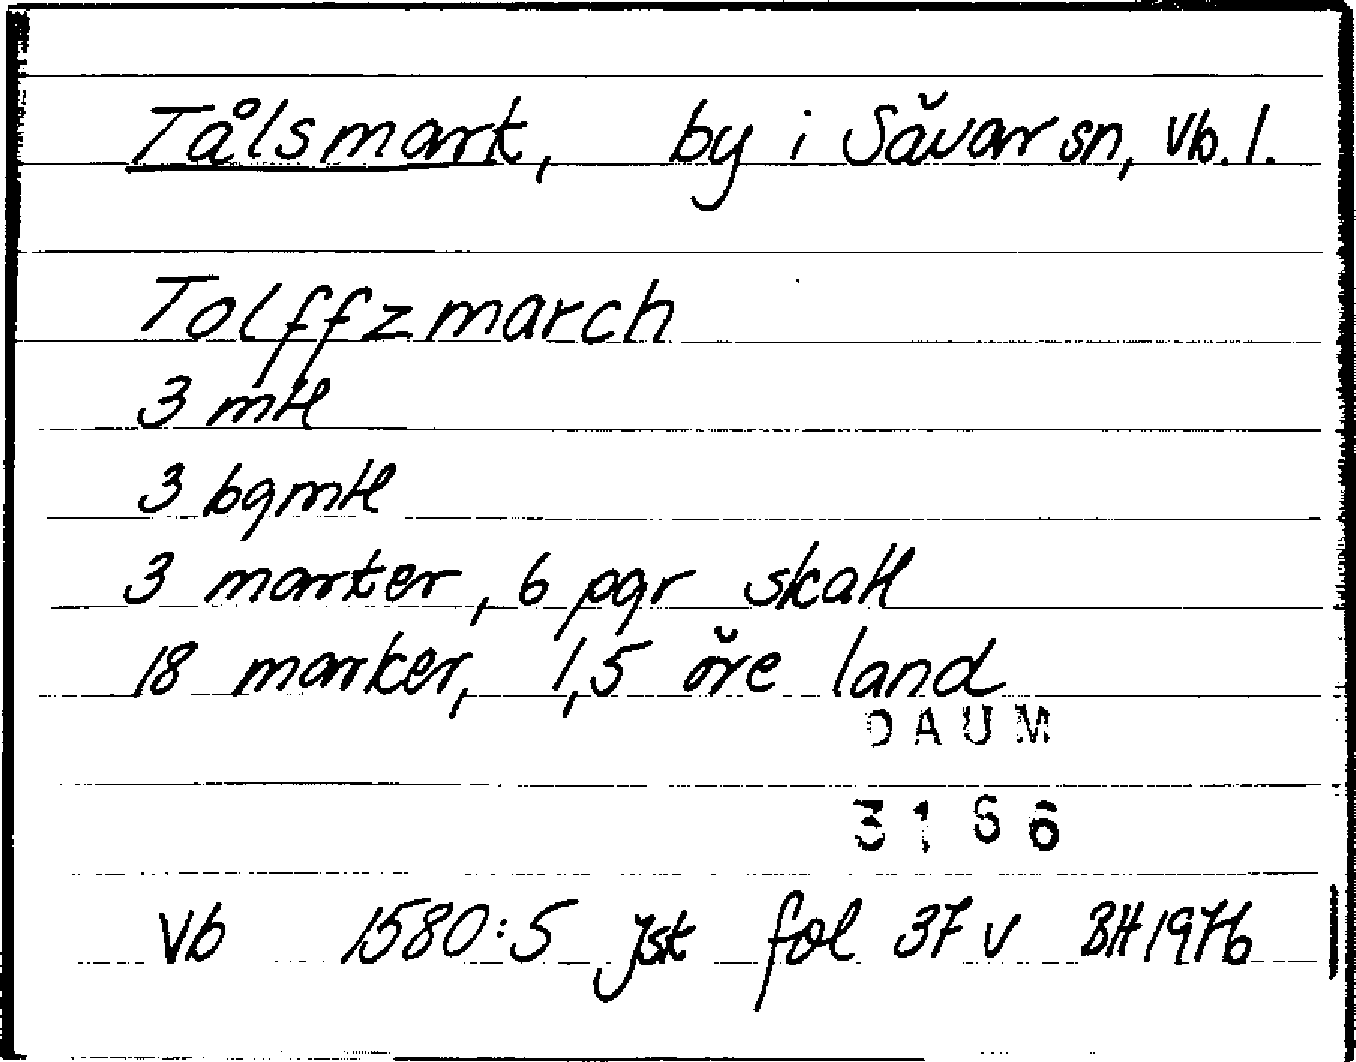 Tålsmark, by i Sävar sn, Vb. l.
Tolffzmarch
3 mtl
3 bgmtl
3 marker, 6 pgr skatt
18 marker, 1,5 öre land
DAUM
3166
Vb 1580:5 jst fol 37 v BH 1976